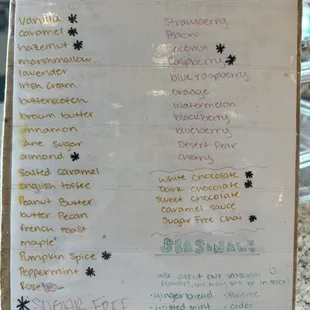 vanilla *
caramel *
hazelnut *
marshmallow
lavender
Irish Cream
butterscotch
brown butter
cinnamon
cane sugar
almond *
Salted Caramel
english toffee
Peanut Butter
butter Pecan
french toast
maple
Pumpkin Spice *
Peppermint *
Rose
* SUGAR FREE
Strawberry
Peach
Coconut *
Raspberry *
blue raspberry
orange
watermelon
blackberry
blueberry
Desert Pear
cherry
White chocolate *
Dark chocolate *
sweet chocolate
caramel sauce
Sugar Free Chai *
SEASONAL:
ask about our seasonal
flavors, we may still be in stock!
· gingerbread
· praline
· frosted mint
· cider